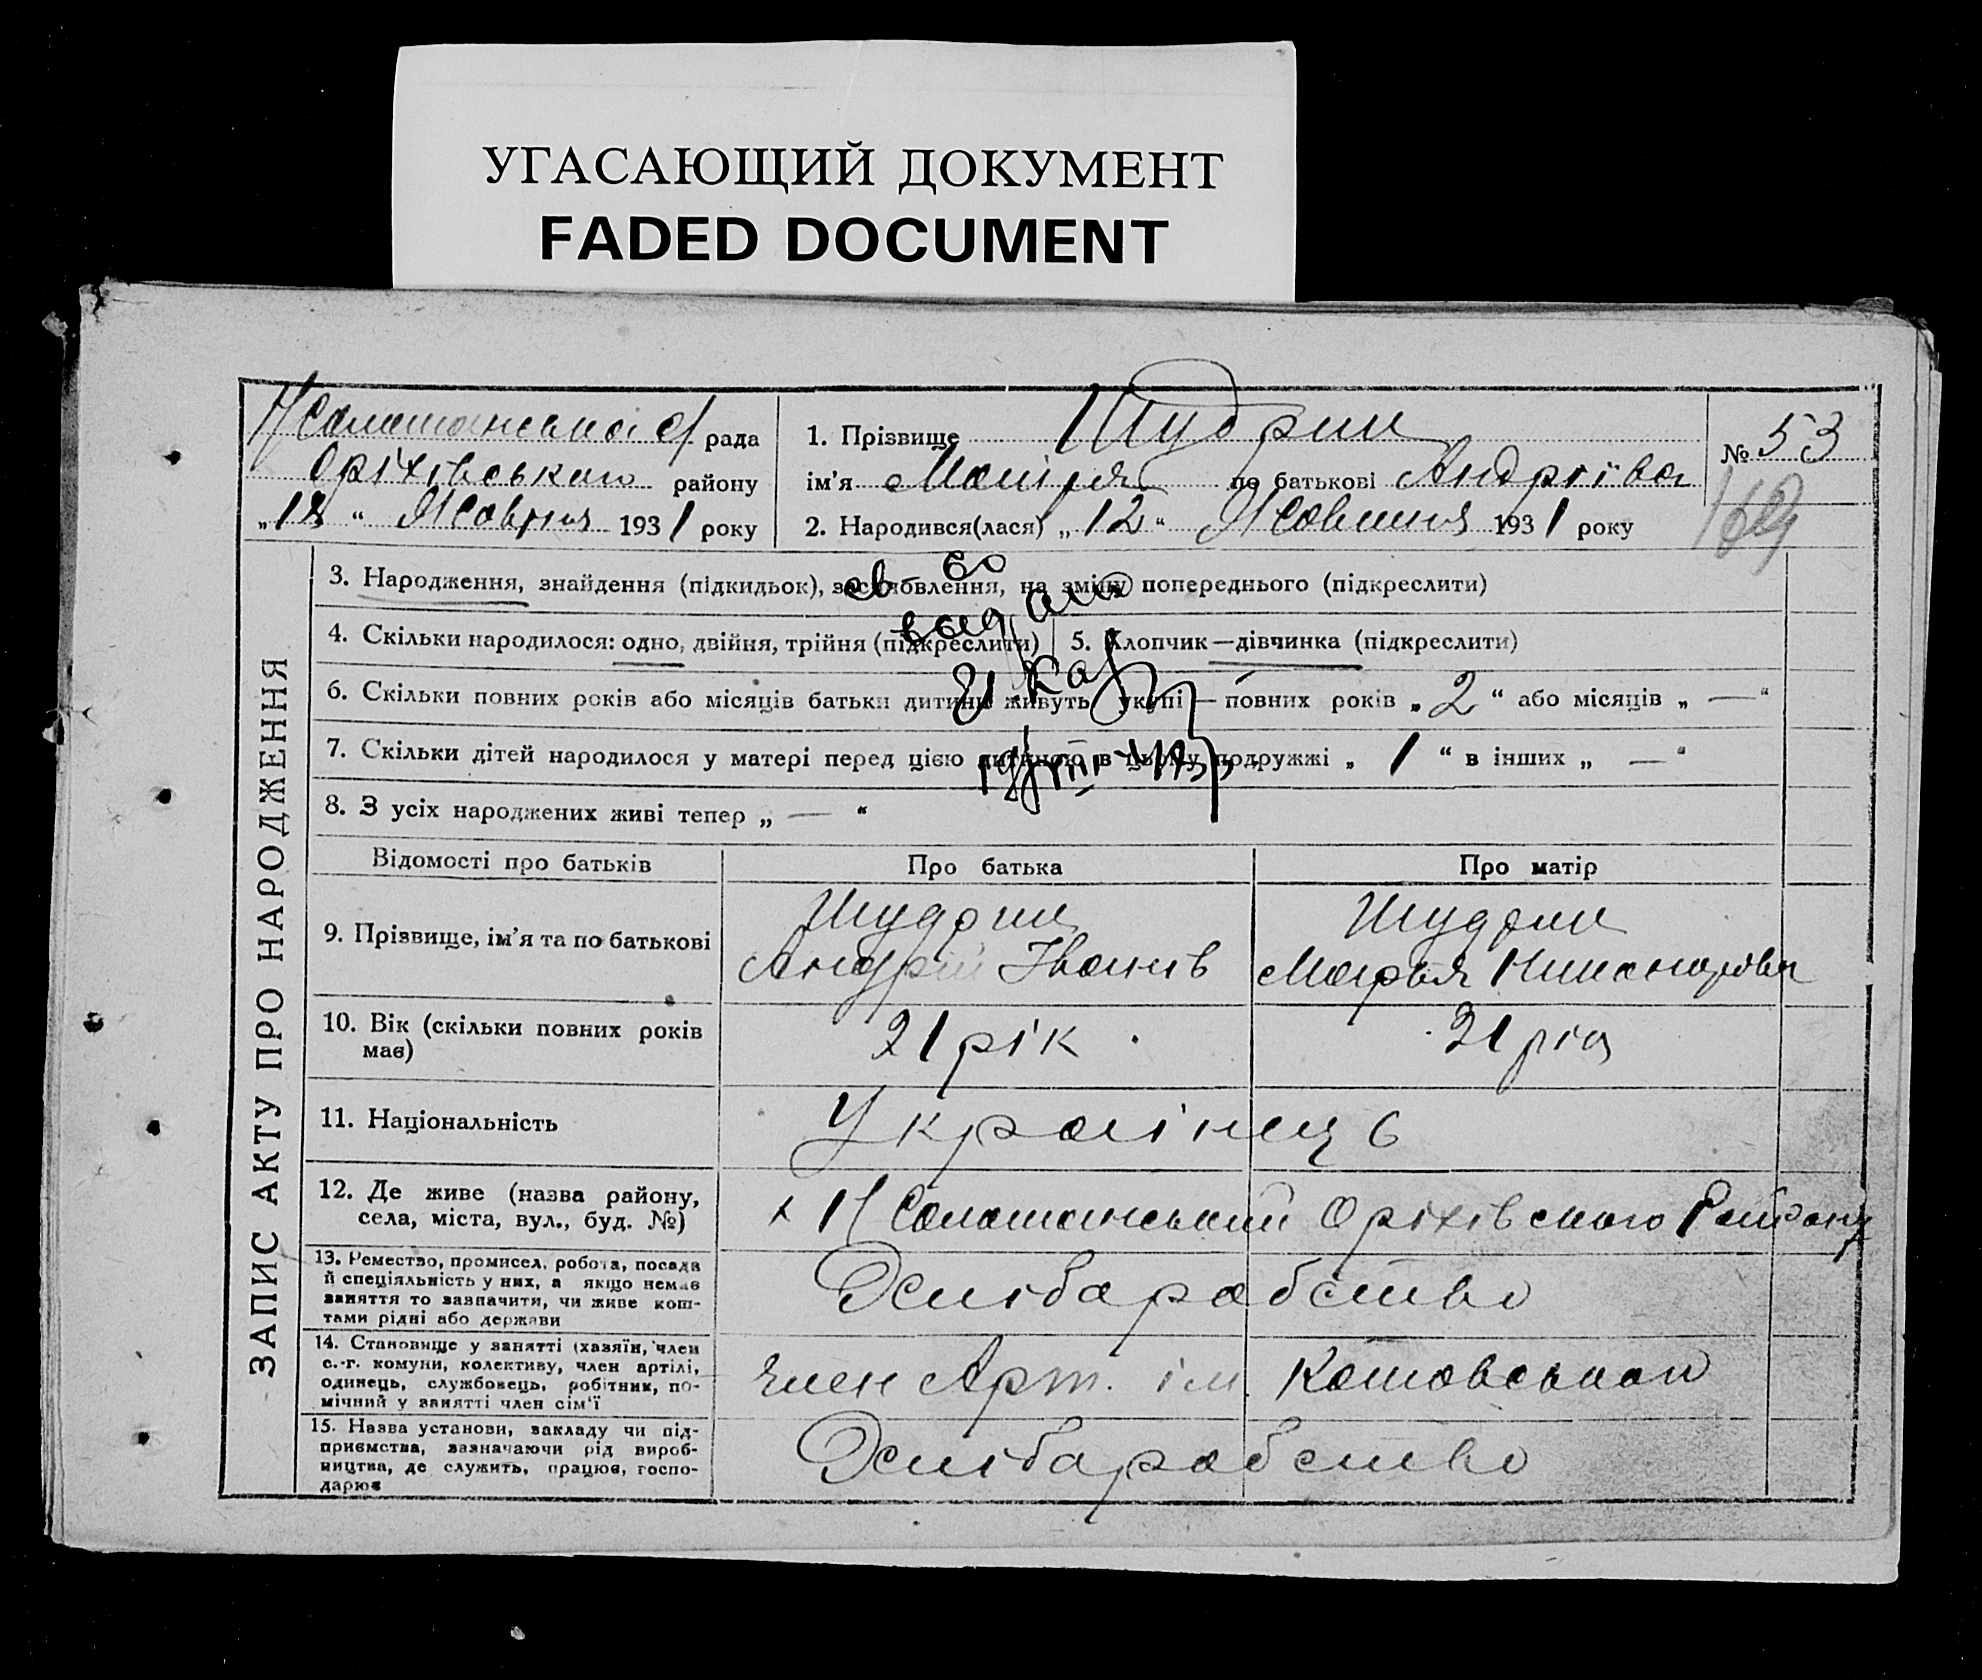 УГАСАЮЩИЙ ДОКУМЕНТ
FADED DOCUMENT
рада
Оріхівського району
„18“ Жовтня 1931 року
1. Прізвище Щудрик
ім’я Марія по батькові Андріївa
2. Народився(лася) „12“ Жовтня 1931 року
№ 53
169
ЗАПИС АКТУ ПРО НАРОДЖЕННЯ
3. Народження, знайдення (підкидьок), встановлення, на зміну попереднього (підкреслити)
св-во
4. Скільки народилося: одно, двійня, трійня (підкреслити)
5. Хлопчик—дівчинка (підкреслити)
6. Скільки повних років або місяців батьки дитини живуть укупі — повних років „2“ або місяців „—“
7. Скільки дітей народилося у матері перед цією дитиною в цьому подружжі „1“ в інших „—“
8. З усіх народжених живі тепер „—“
Відомості про батьків
Про батька
Про матір
9. Прізвище, ім’я та по батькові
Андрій Іванів
Марья
10. Вік (скільки повних років має)
21 рік
21 рік
11. Національність
Українець
12. Де живе (назва району,
села, міста, вул., буд. №)
Оріхівського Району
13. Ремество, промисел, робота, посада
й спеціяльність у них, а якщо немає
заняття то зазначити, чи живе кош-
тами рідні або держави
Хліборобство
14. Становище у занятті (хазяїн, член
с.-г. комуни, колективу, член артілі,
одинець, службовець, робітник, по-
мічний у занятті член сім’ї
член Арт. ім. Котовського
15. Назва установи, закладу чи під-
приємства, зазначаючи рід вироб-
ництва, де служить, працює, госпо-
дарює
Хліборобство